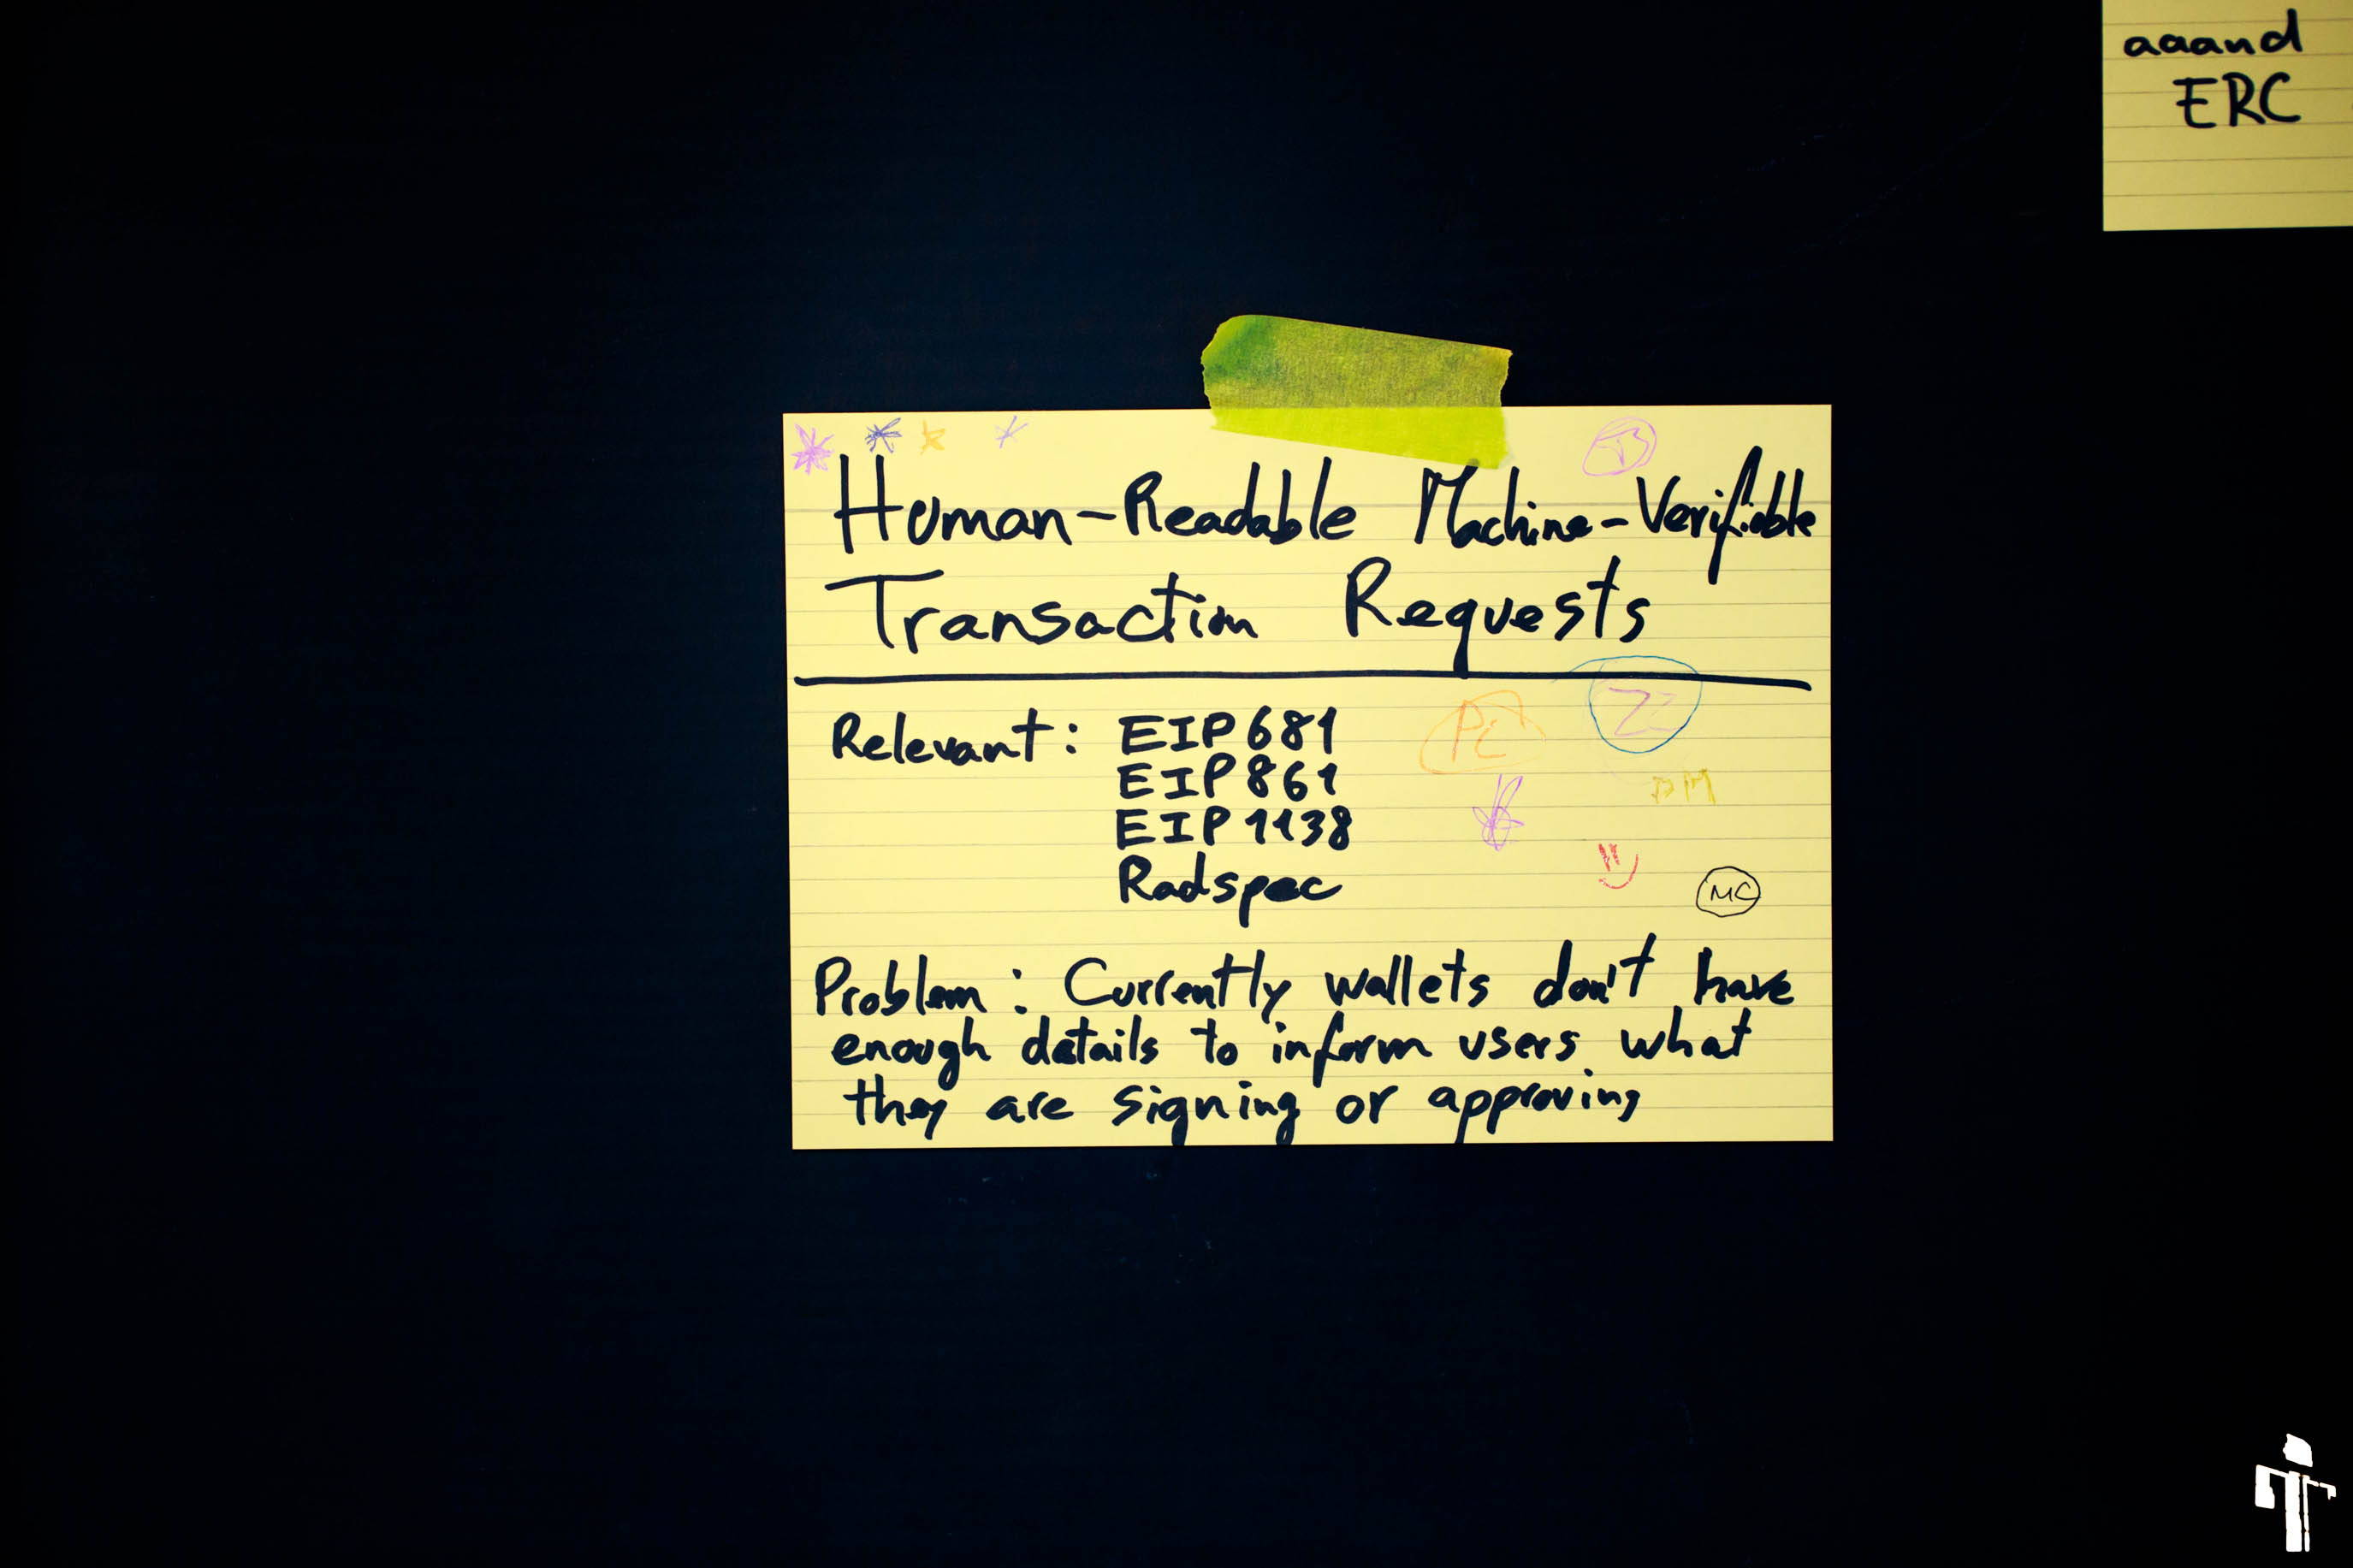 aaand
ERC
Human-Readable Machine-Verifiable
Transaction Requests
Relevant: EIP 681
EIP 861
EIP 1138
Radspec
PC
ZZ
DM
MC
Problem: Currently wallets don't have
enough details to inform users what
they are signing or approving